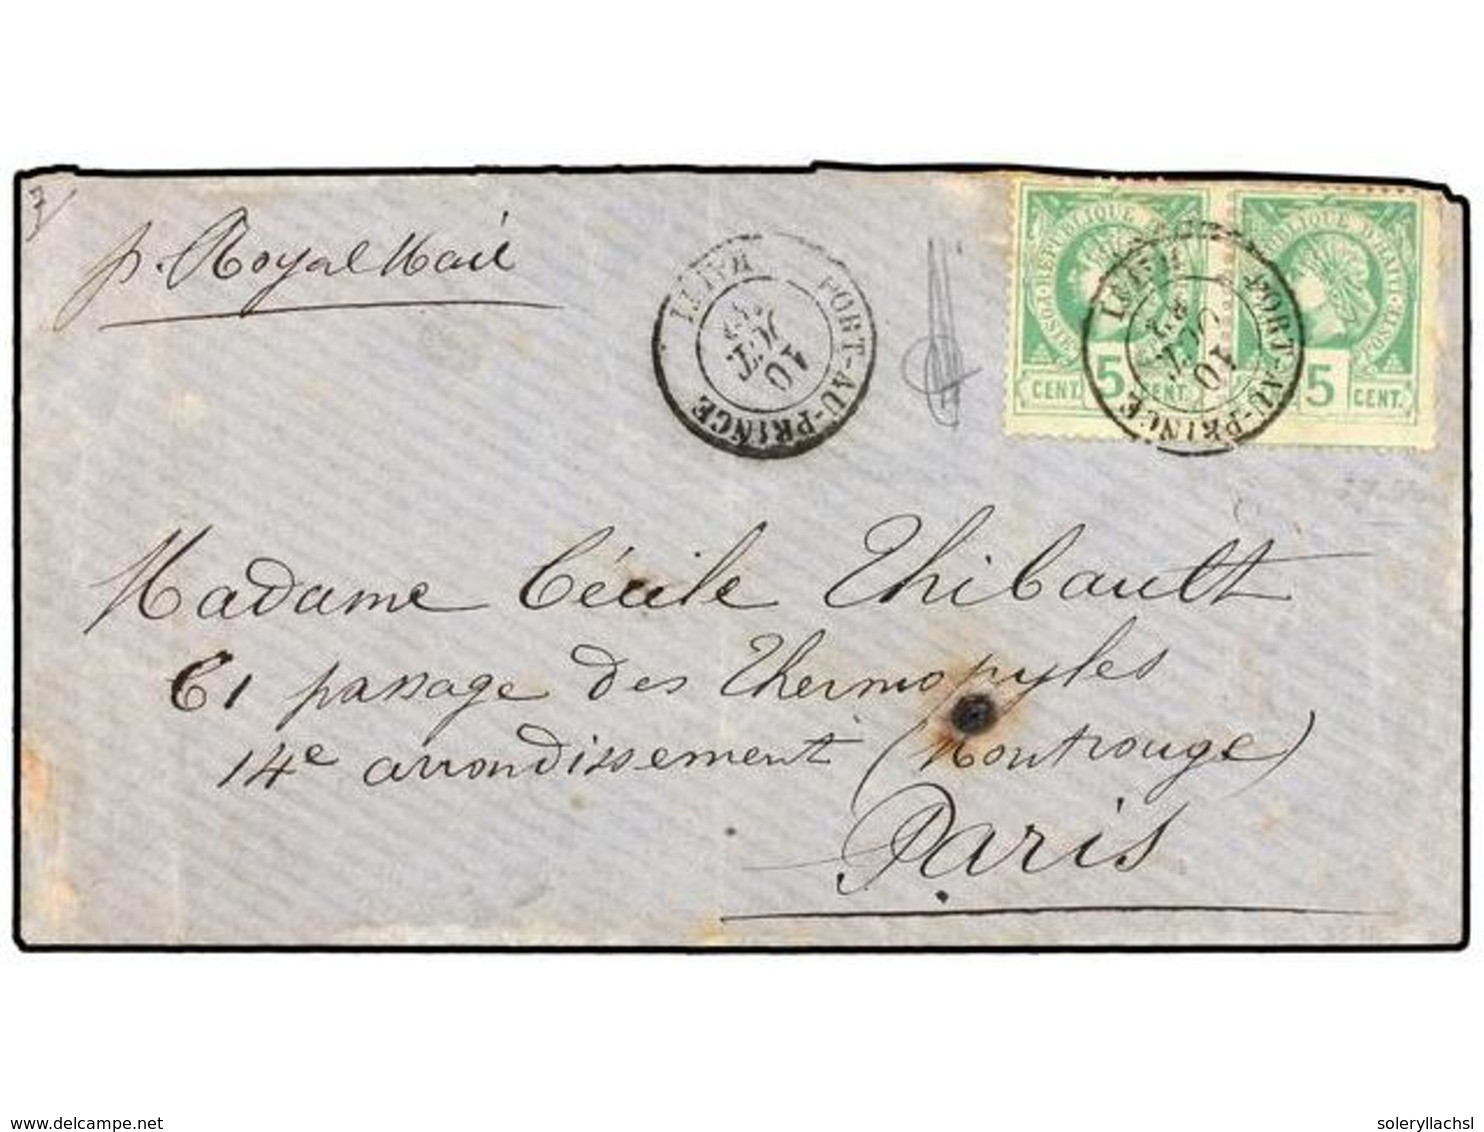 p. Royal Mail
HAITI PORT-AU-PRINCE
10 OCT
RÉPUBLIQUE
5
CENT. CENT.
HAITI PORT-AU-PRINCE
10 OCT
5
CENT.
Madame Cécile Thibault
61 passage des Thermopyles
14e arrondissement (Montrouge)
Paris
www.delcampe.net
soleryllachsl